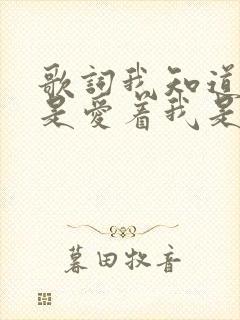 歌詞我知道
是愛着我是
暮田牧音